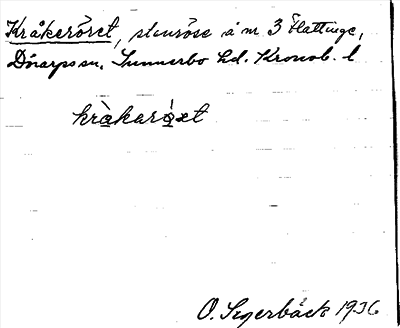 Kråkeröset, stenröse å nr 3 Flattinge,
Dörarps sn. Sunnerbo hd. Kronob. l
kråkaröset
O. Segerbäck 1936